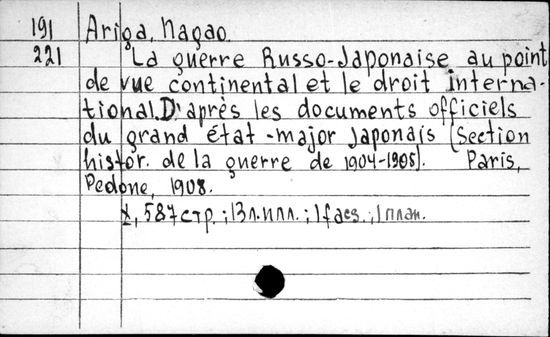 191 Ariga, Nagao.
221 La guerre Russo-Japonaise au point
de vue continental et le droit interna-
tional. D'après les documents officiels
du grand état-major Japonais (Section
histor. de la guerre de 1904-1905). Paris,
Pedone, 1908.
X, 587 стр.; 13 л. илл.; 1 facs.; 1 план.